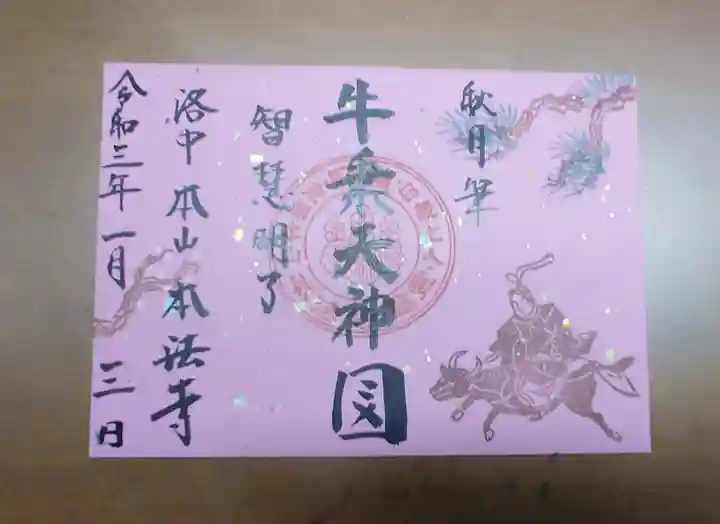 秋月筆
牛乗天神図
智慧明了
洛中 本山 本法寺
令和三年一月 三日